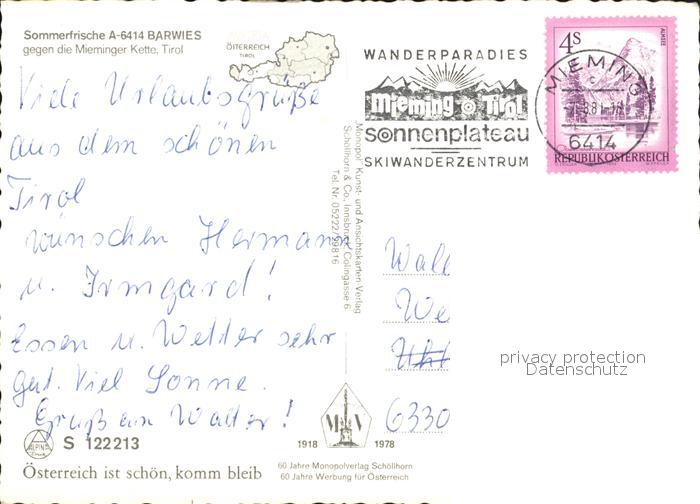 Sommerfrische A-6414 BARWIES
gegen die Mieminger Kette, Tirol
ÖSTERREICH
TIROL
Viele Urlaubsgrüße
aus dem schönen
Tirol
wünschen Hermann
u. Irmgard!
Essen u. Wetter sehr
gut. Viel Sonne.
Gruß an Walter!
ALPINA
S 122213
Österreich ist schön, komm bleib
"Monopol" Kunst- und Ansichtskarten-Verlag
Schöllhorn & Co., Innsbruck, Colingasse 6
Tel. Nr. 05222/29816
M V
1918 1978
60 Jahre Monopolverlag Schöllhorn
60 Jahre Werbung für Österreich
WANDERPARADIES
mieming Tirol
sonnenplateau
SKIWANDERZENTRUM
4S
ALMSEE
MIEMING
c
6414
REPUBLIK ÖSTERREICH
Wal
We
6330
privacy protection
Datenschutz